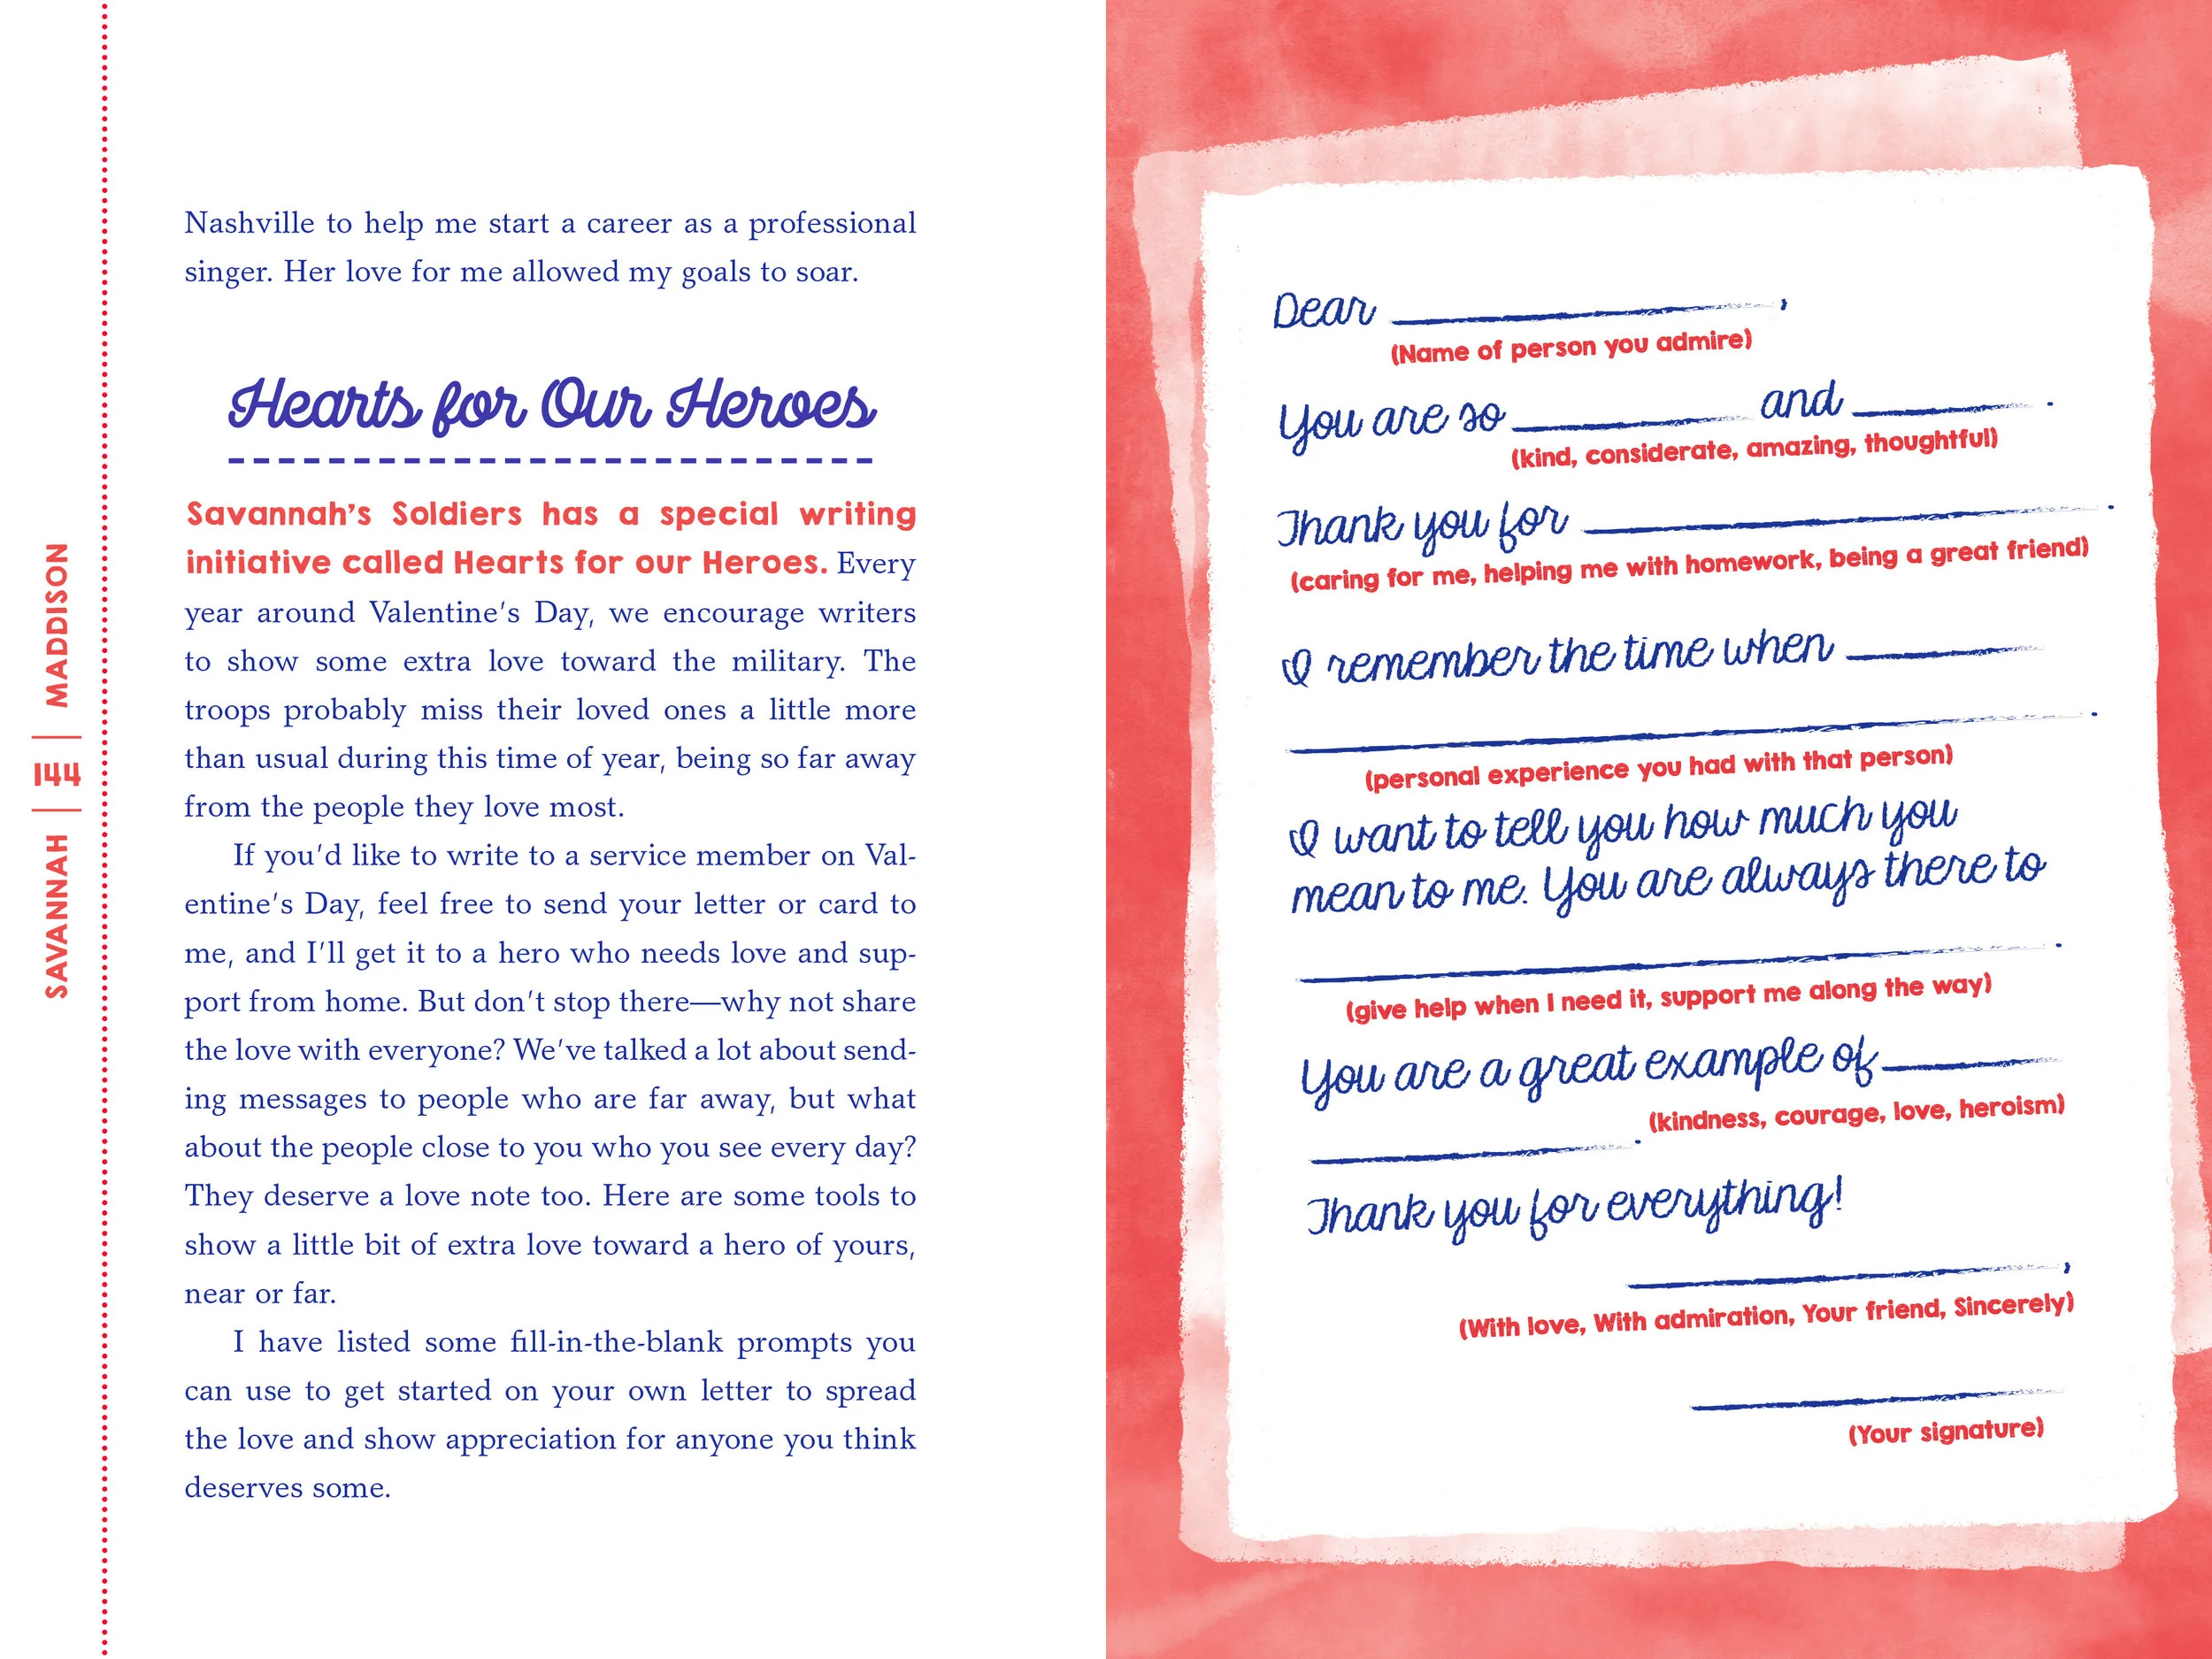 Nashville to help me start a career as a professional
singer. Her love for me allowed my goals to soar.
Hearts for Our Heroes
Savannah’s Soldiers has a special writing
initiative called Hearts for our Heroes. Every
year around Valentine’s Day, we encourage writers
to show some extra love toward the military. The
troops probably miss their loved ones a little more
than usual during this time of year, being so far away
from the people they love most.
If you’d like to write to a service member on Val-
entine’s Day, feel free to send your letter or card to
me, and I’ll get it to a hero who needs love and sup-
port from home. But don’t stop there—why not share
the love with everyone? We’ve talked a lot about send-
ing messages to people who are far away, but what
about the people close to you who you see every day?
They deserve a love note too. Here are some tools to
show a little bit of extra love toward a hero of yours,
near or far.
I have listed some fill-in-the-blank prompts you
can use to get started on your own letter to spread
the love and show appreciation for anyone you think
deserves some.
SAVANNAH | 144 | MADDISON
Dear __________,
(Name of person you admire)
You are so ________ and ________.
(kind, considerate, amazing, thoughtful)
Thank you for __________.
(caring for me, helping me with homework, being a great friend)
I remember the time when ________
__________.
(personal experience you had with that person)
I want to tell you how much you
mean to me. You are always there to
__________.
(give help when I need it, support me along the way)
You are a great example of ________
________. (kindness, courage, love, heroism)
Thank you for everything!
__________,
(With love, With admiration, Your friend, Sincerely)
__________
(Your signature)